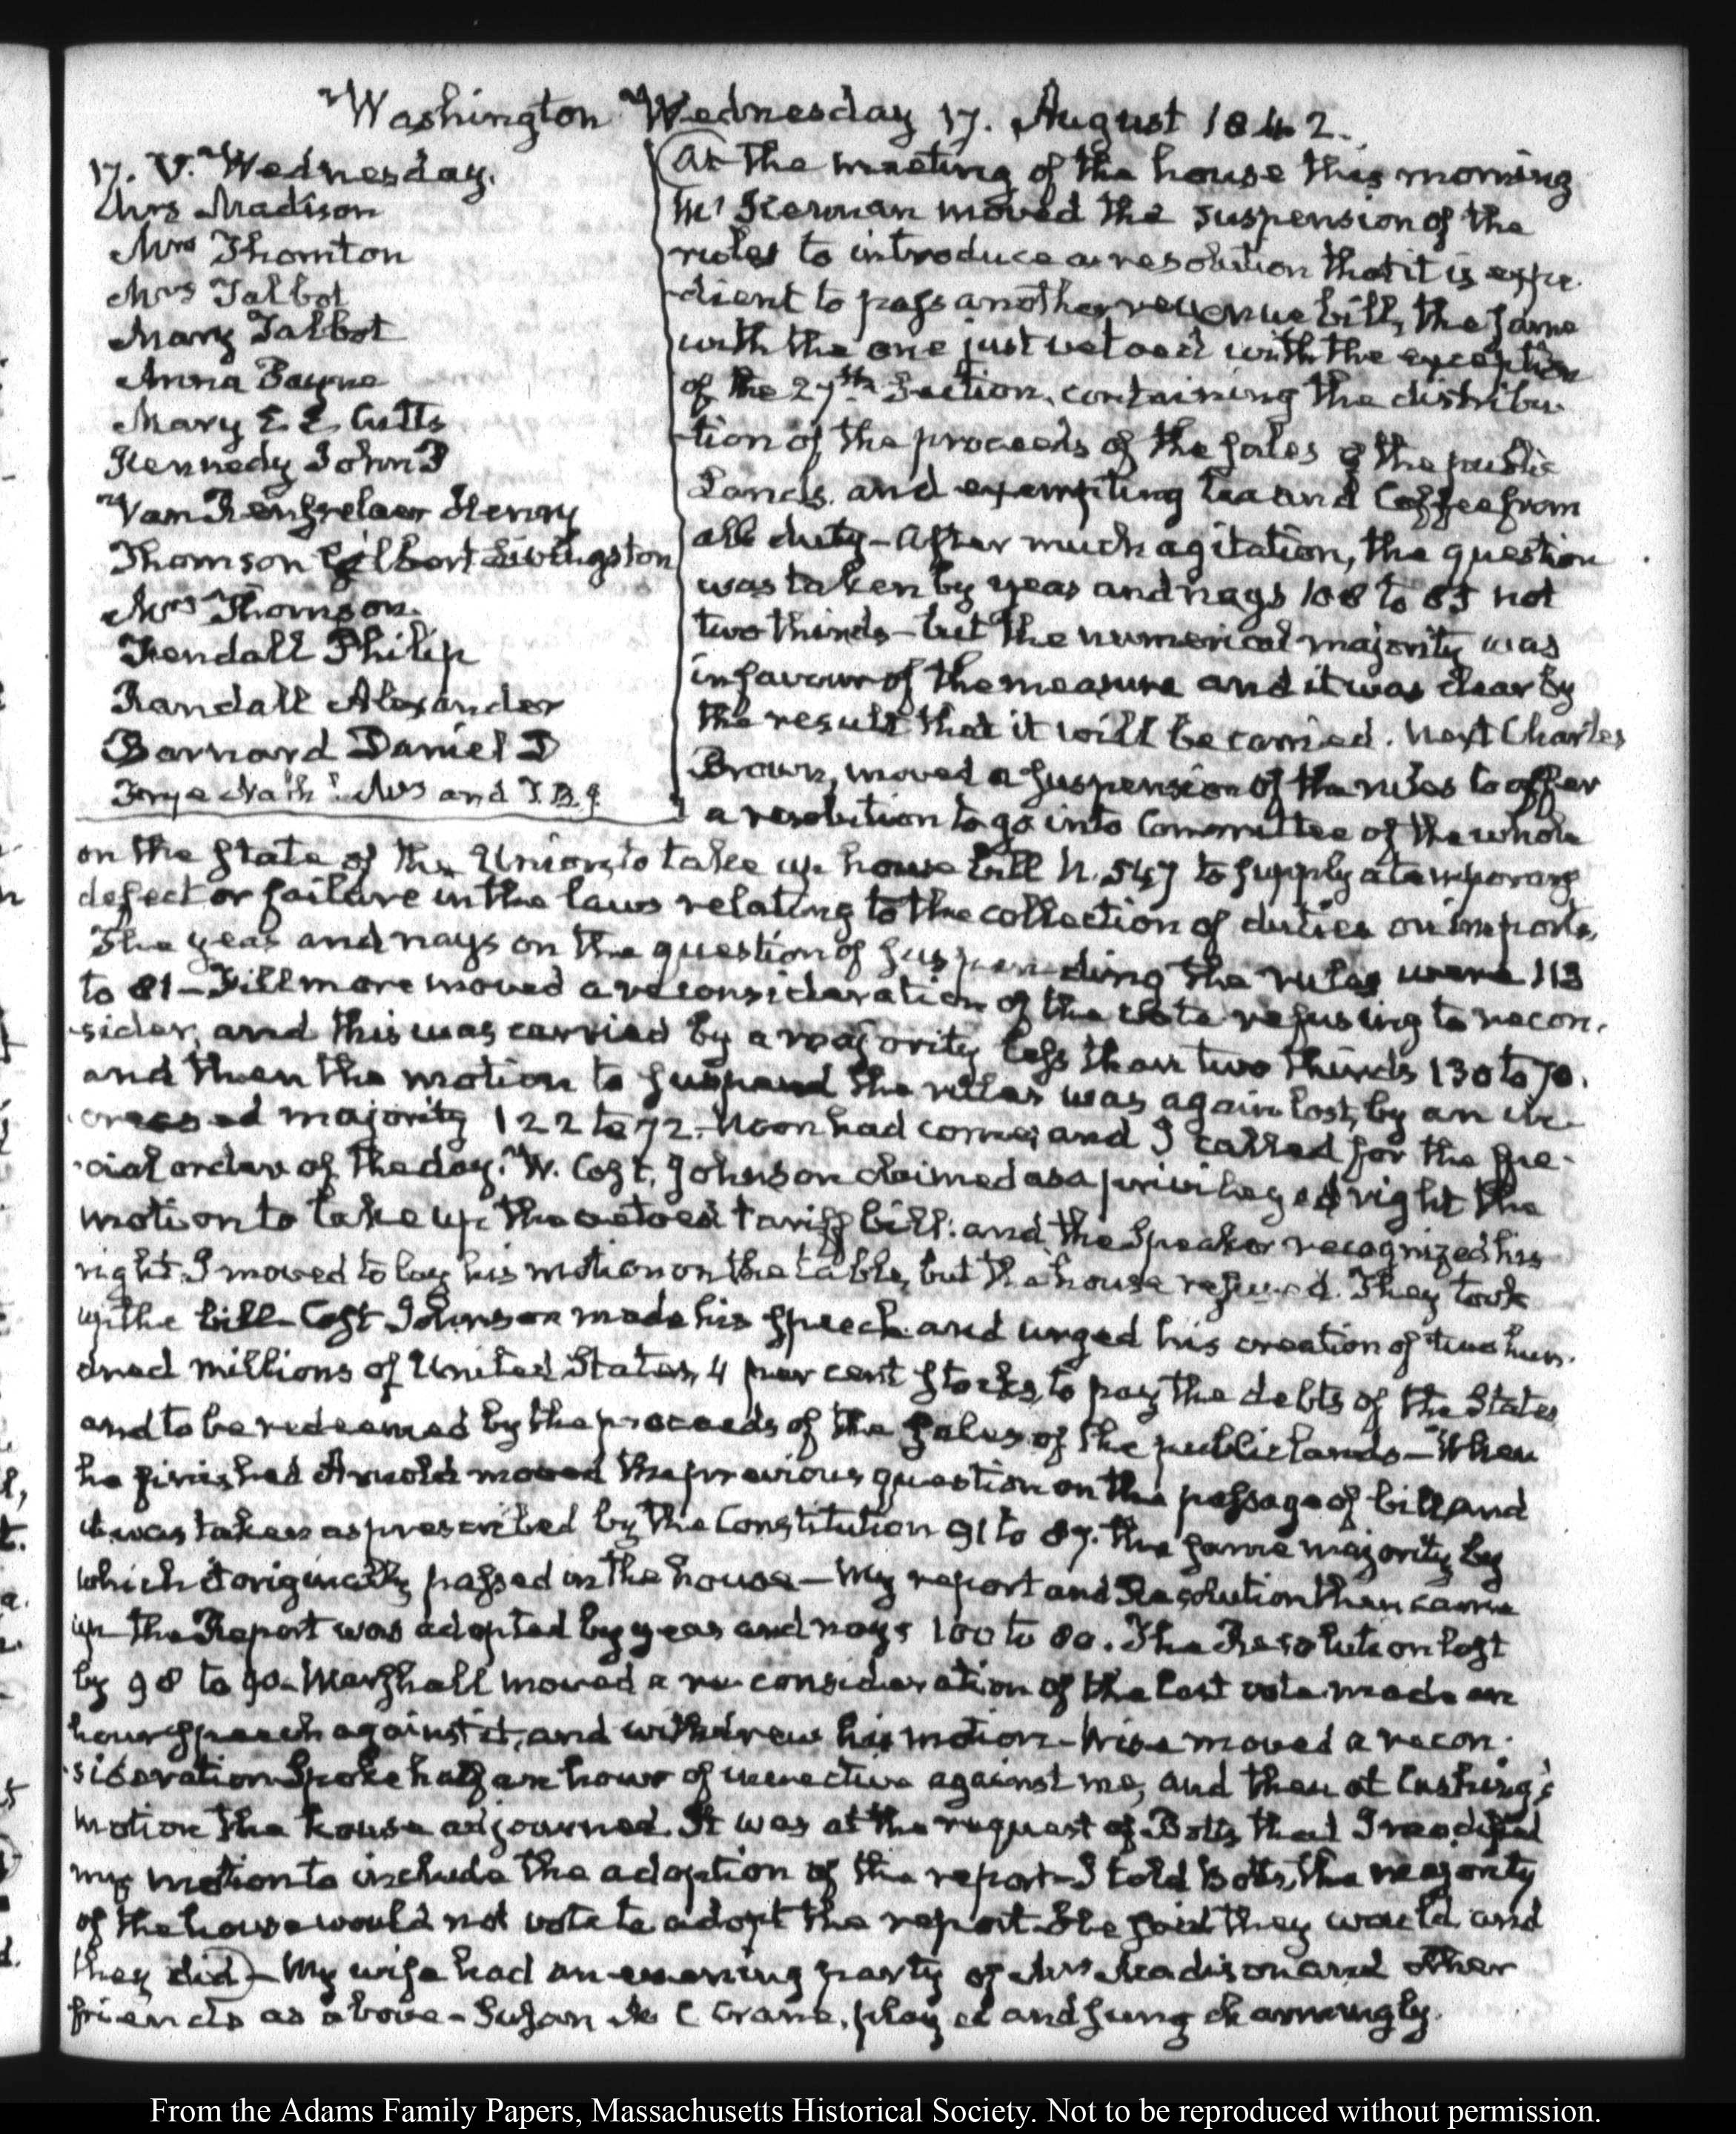 Washington Wednesday 17. August 1842.
17. V. Wednesday.
Mrs Madison
Mrs Thornton
Mrs Talbot
Mary Talbot
Anna Payne
Mary E E Cutts
Kennedy John P
Van Rensselaer Henry
Thomson Gilbert Livingston
Mrs Thomson.
Kendall Philip
Randall Alexander
Barnard Daniel D
Frye Nath: Mrs and T. B. F
At the meeting of the house this morning
Mr McKennan moved the suspension of the
rules to introduce a resolution that it is expe-
dient to pass another revenue bill, the same
with the one just vetoed with the exception
of the 27th Section, containing the distribu-
tion of the proceeds of the sales of the public
Lands, and exempting tea and Coffee from
all duty—After much agitation, the question
was taken by yeas and nays 108 to 85 not
two thirds—but the numerical majority was
in favour of the measure and it was clear by
the result that it will be carried. Next Charles
Brown, moved a suspension of the rules to offer
a resolution to go into Committee of the whole
on the state of the Union, to take up house bill N. 547 to supply a temporary
defect or failure in the laws relating to the collection of duties on imports,
The yeas and nays on the question of suspending the rules were 113
to 81—Fillmore moved a reconsideration of the vote refusing to recon-
sider, and this was carried by a majority less than two thirds 130 to 70.
and then the motion to suspend the rules was again lost, by an in-
creased majority 122 to 72. Noon had come, and I called for the spe-
cial order of the day. W. Cost. Johnson claimed as a privileged right the
motion to take up the vetoed tariff bill: and the Speaker recognized his
right. I moved to lay his motion on the table, but the house refused. They took
up the bill—Cost Johnson made his speech and urged his creation of two hun-
dred millions of United States, 4 per cent stocks, to pay the debts of the States
and to be redeemed by the proceeds of the sales of the public lands—When
he finished Arnold moved the previous question on the passage of bill, and
it was taken as prescribed by the Constitution 91 to 87. the same majority by
which it originally passed in the house—My report and Resolution then came
up—the Report was adopted by yeas and nays 100 to 80. The Resolution lost
by 98 to 90. Marshall moved a re-consideration of the last vote made an
hour speech against it, and withdrew his motion—Wise moved a recon-
sideration Spoke half an hour of invective against me, and then at Cushing's
motion the house adjourned. It was at the request of Botts, that I modified
my motion to include the adoption of the report—I told Botts, the majority
of the house would not vote to adopt the report. He said they would and
they did—My wife had an evening party of Mrs Madison and other
friends as above—Susan M C Crane, played and sung charmingly.
From the Adams Family Papers, Massachusetts Historical Society. Not to be reproduced without permission.